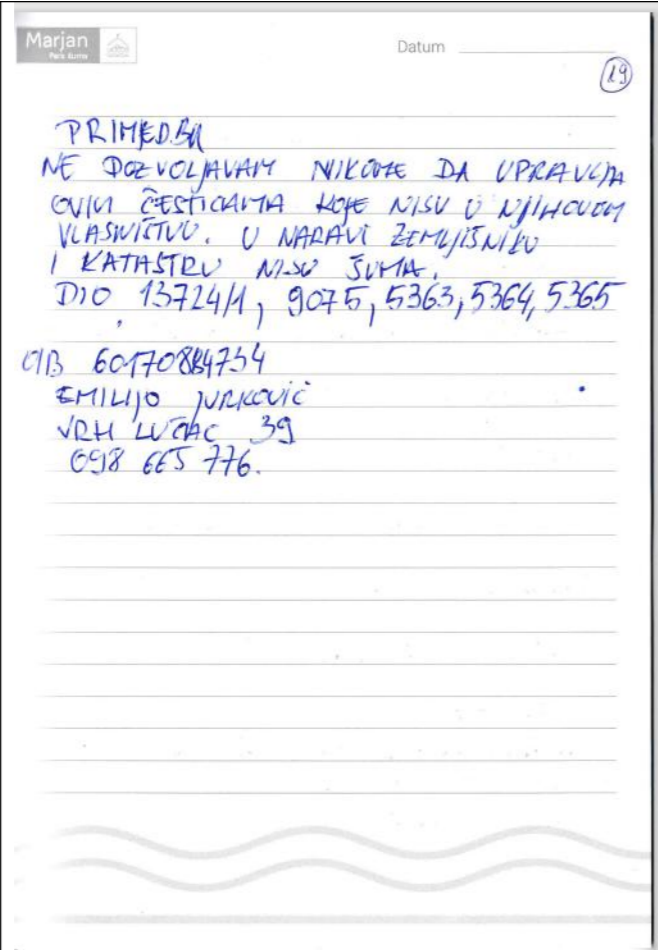 Marjan
Park šuma
Datum
19
PRIMJEDBA
NE DOZVOLJAVAM NIKOME DA UPRAVLJA
OVIM ČESTICAMA KOJE NISU U NJIHOVOM
VLASNIŠTVU. U NARAVI ZEMLJIŠNIKU
I KATASTRU NISU ŠUMA.
DIO 13724/1, 9075, 5363, 5364, 5365
OIB
EMILIJO JURKOVIĆ
VRH LUČAC 39
098 665 776.